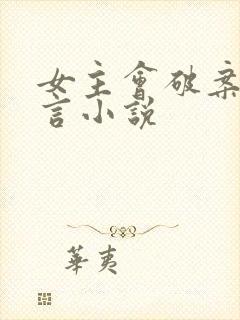 女主會破案
言小說
華夷